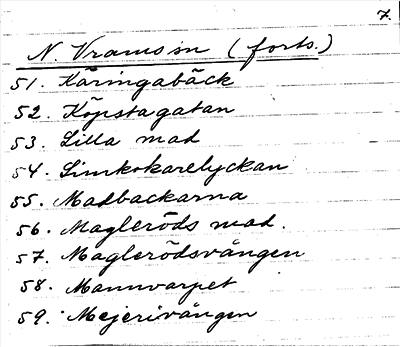 7.
N. Vramsån (forts.)
51. Käringabäck
52. Köpstagatan
53. Lilla mad
54. Limkokarelyckan
55. Madbackarna
56. Magleröds mad.
57. Maglerödsvången
58. Mannvarpet
59. Mejerivången